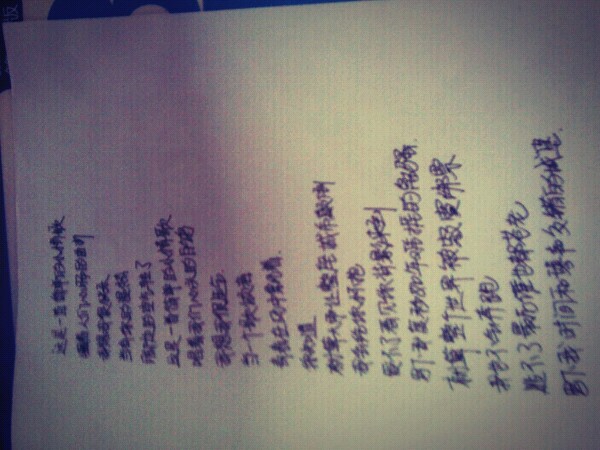 这是一首简单的小情歌
唱着人们心肠的曲折
我想我很快乐
当有你的温热
脚边的空气转了
这是一首简单的小情歌
唱着我们心头的白鸽
我想我很适合
当一个歌颂者
青春在风中飘着.
你知道
就算大雨让整座城市颠倒
我会给你怀抱
受不了看见你背影来到
写下我度秒如年难捱的离骚.
就算整个世界被寂寞绑票
我也不会奔跑
逃不了最后谁也都苍老
写下我 时间和琴声交错的城堡.